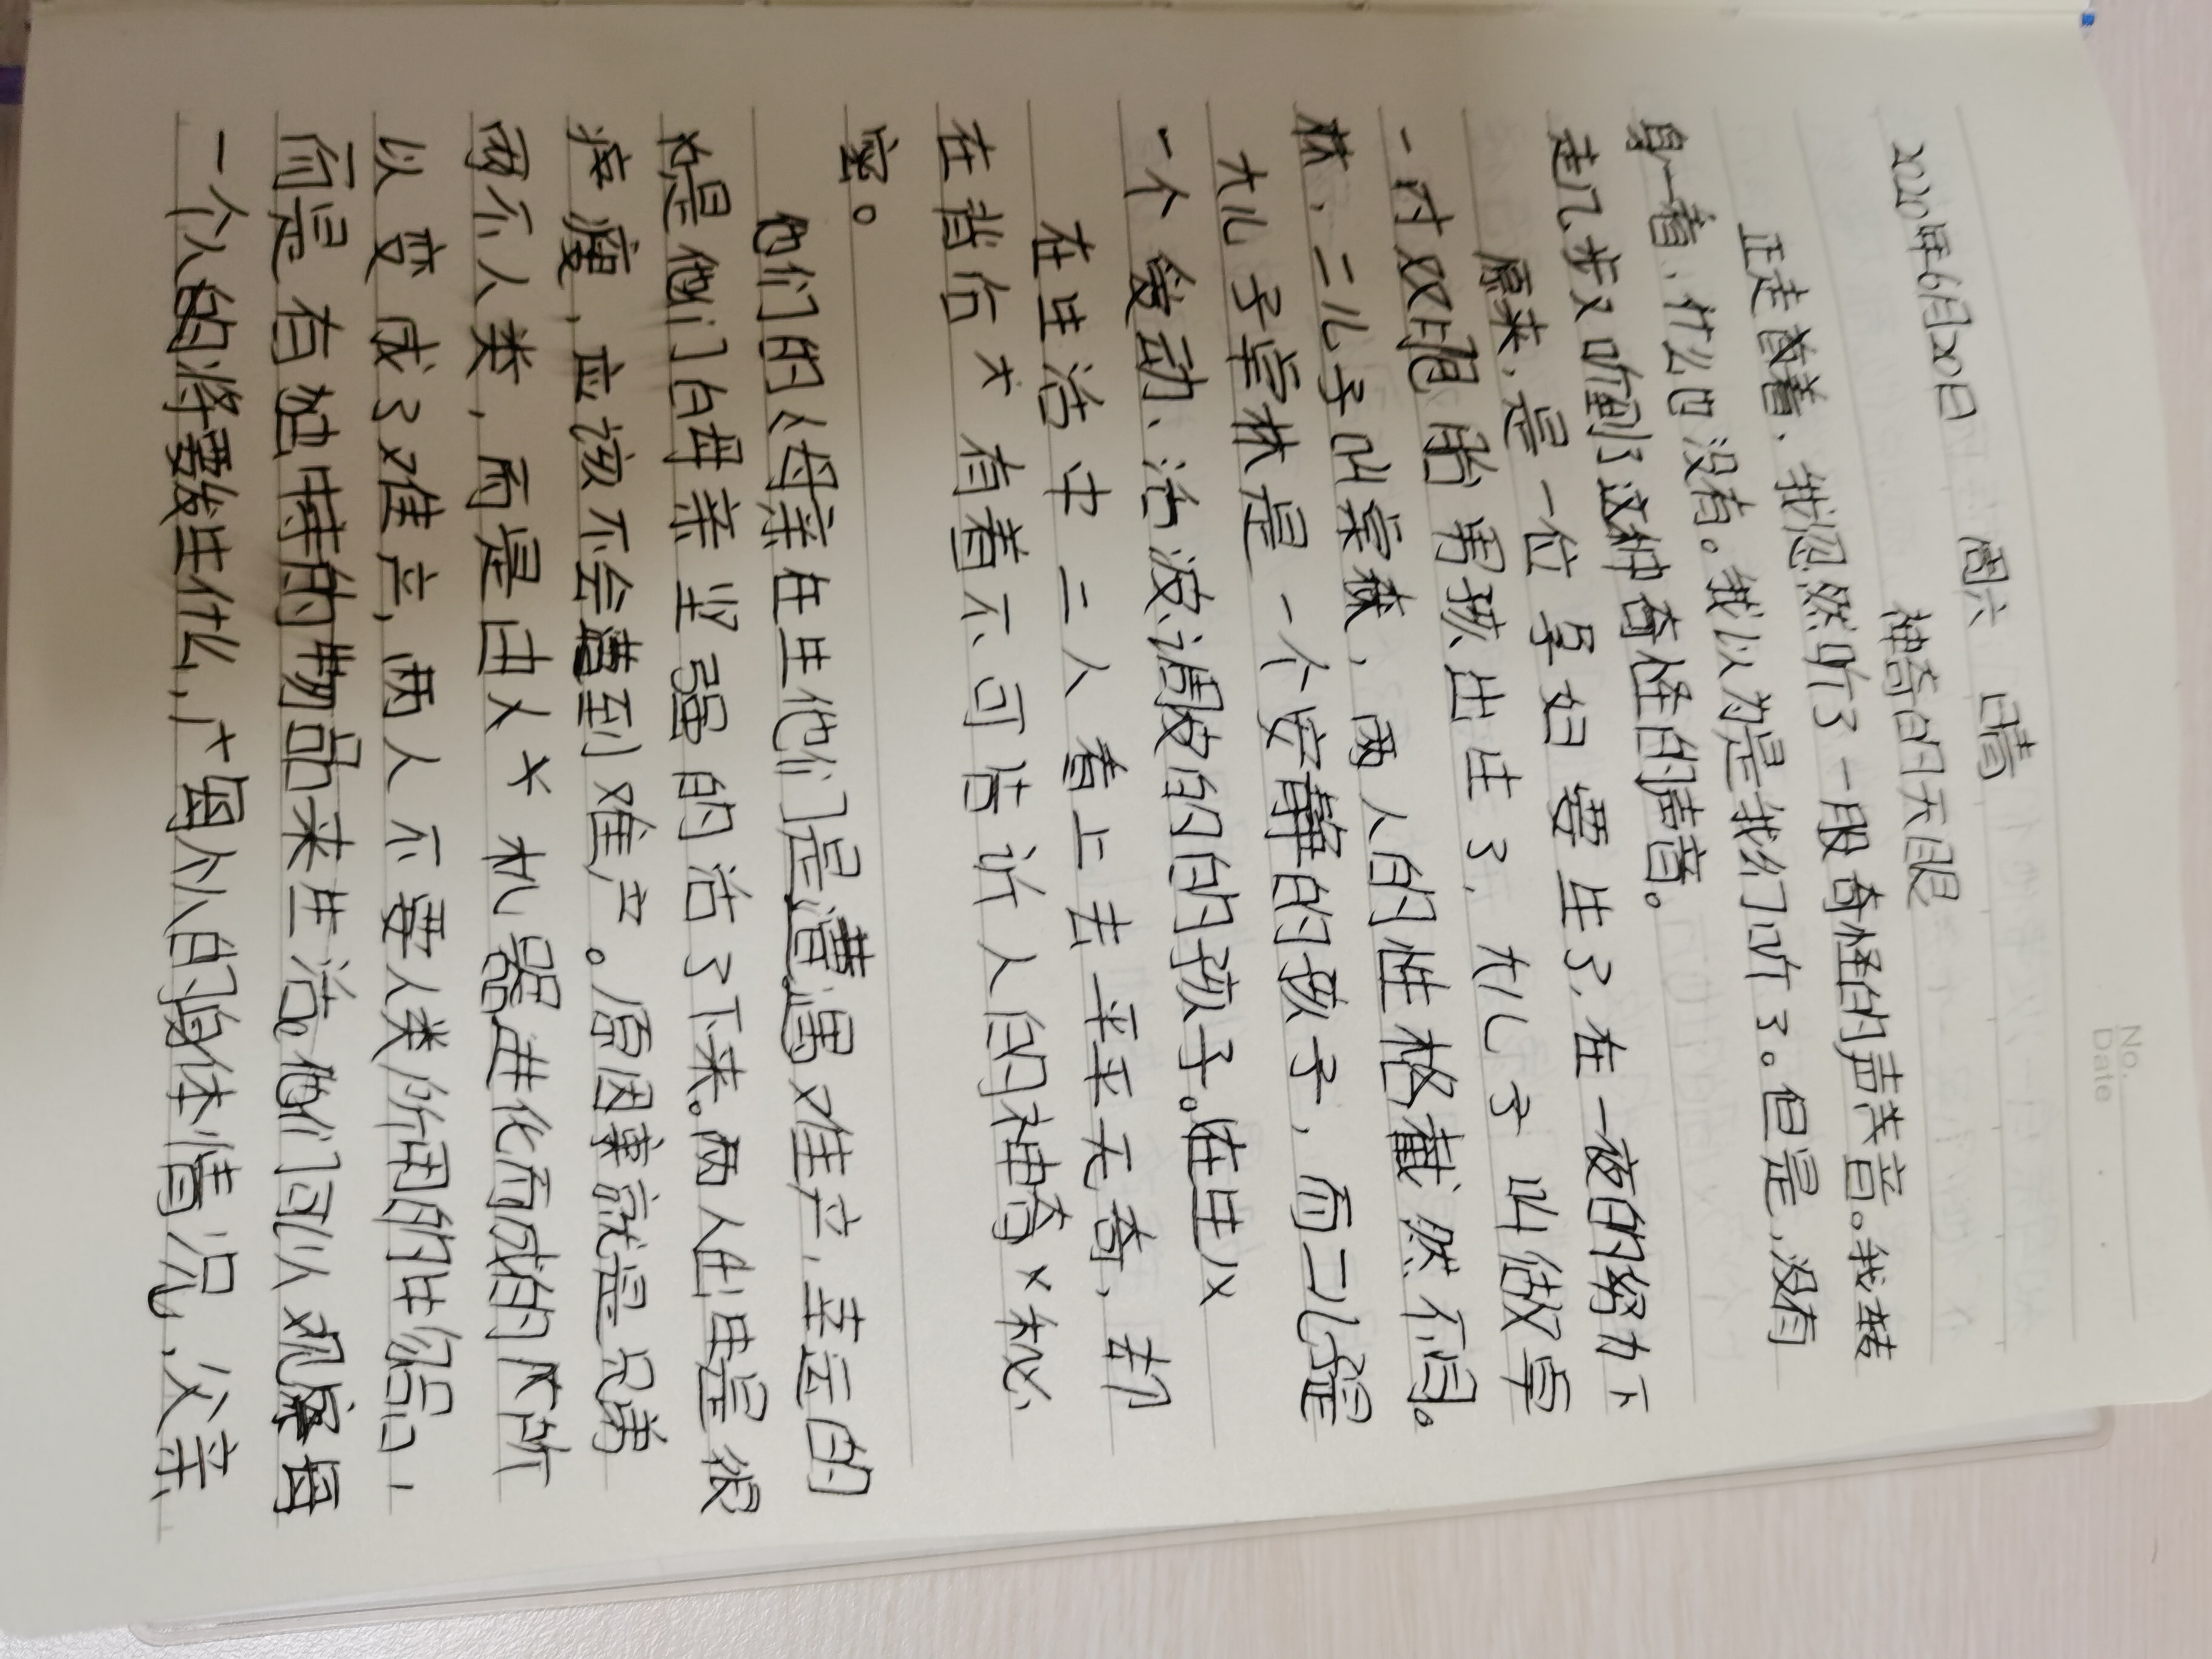 No.
Date
2020年6月20日 周六 晴
神奇的天眼
正走着着、我忽然听了一股奇怪的声音。我转
身一看、什么也没有。我以为是我幻听了。但是,没有
走几步又听到了这种奇怪的声音。
原来、是一位孕妇要生了,在一夜的努力下
一对双胞胎男孩出生了,大儿子叫做宗
林、二儿子叫宗森,两人的性格截然不同。
大儿子宗林是一个安静的孩子,而二儿子是
一个爱动、活波调皮的的孩子。在生
在生活中二人看上去平平无奇、却
在背后有着不可告诉人的神奇秘
密。
他们的母亲在生他们是遭遇难产,幸运的
是他们的母亲坚强的活了下来。两人出生是很
瘦,应该不会遭到难产。原因就是兄弟
两不人类,而是由人机器进化而成的所
以变成了难产,两人不要人类所用的生活品,
而是有独特的物品来生活。他们可以观察每
一个人的将要发生什么,广里人的身体情况、父亲